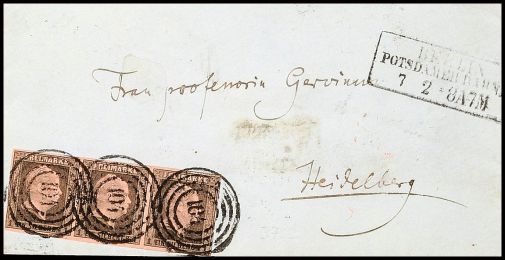 BERLIN
POTSDAMER BAHNH.
7 2 8A7M
Frau professorin Gervinus
Heidelberg
FREIMARKE FREIMARKE FREIMARKE
101 101 101